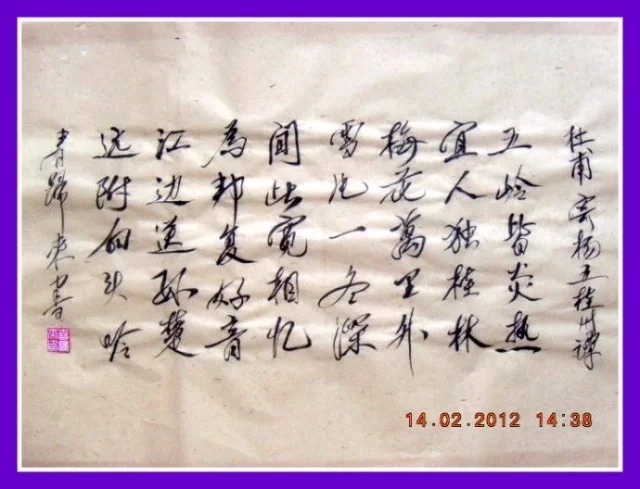 杜甫 寄杨五桂州譚
五岭皆炎热
宜人独桂林
梅花萬里外
雪片一冬深
闻此宽相忆
為邦复好音
江边送孙楚
远附白头吟
青
14.02.2012 14:38